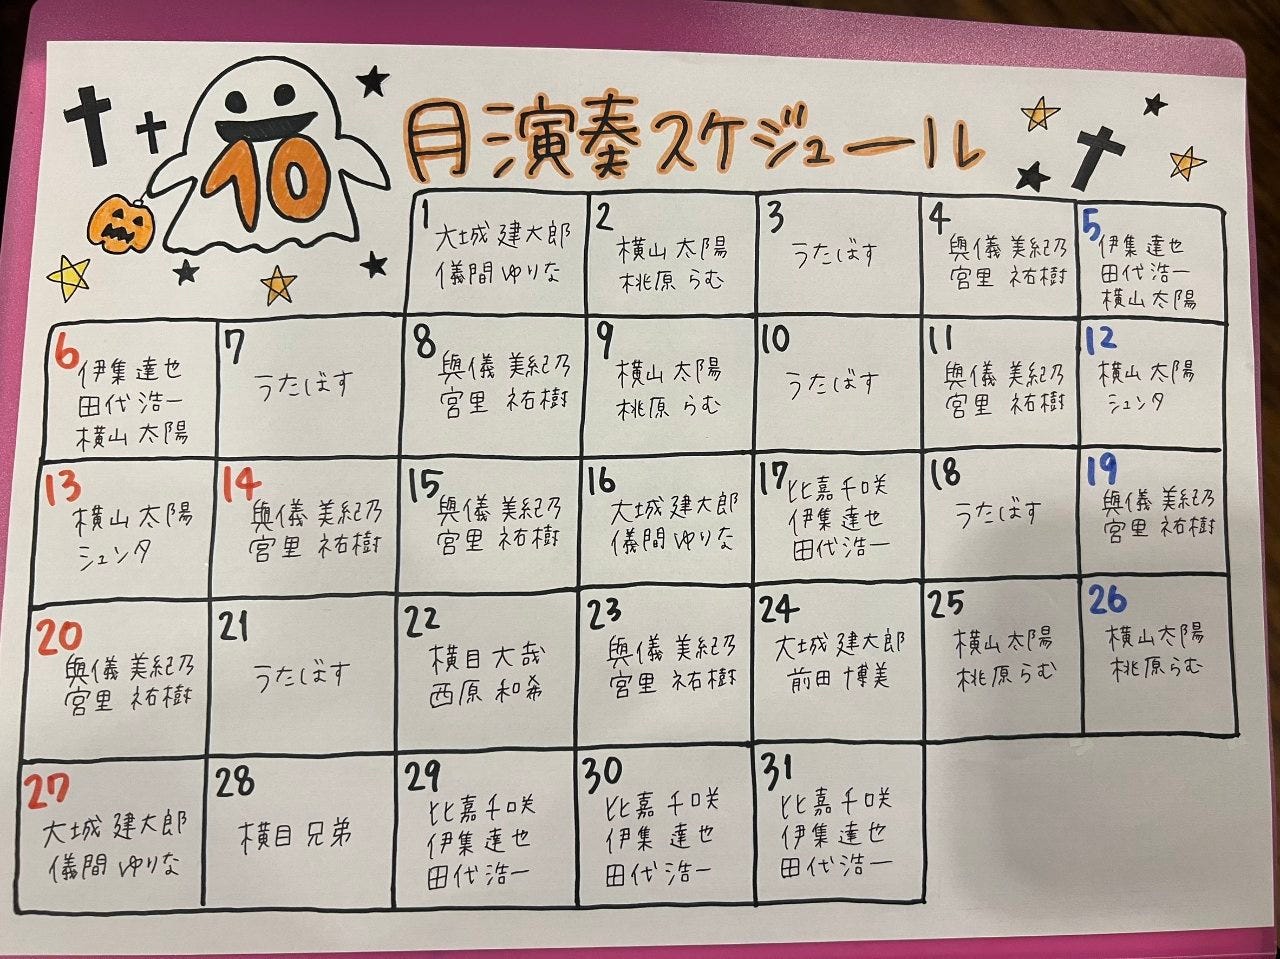 10月演奏スケジュール
1
大城 建太郎
儀間 ゆりな
2
横山 太陽
桃原 らむ
3
うたばす
4
與儀 美紀乃
宮里 祐樹
5
伊集 達也
田代 浩一
横山 太陽
6
伊集 達也
田代 浩一
横山 太陽
7
うたばす
8
與儀 美紀乃
宮里 祐樹
9
横山 太陽
桃原 らむ
10
うたばす
11
與儀 美紀乃
宮里 祐樹
12
横山 太陽
シュンタ
13
横山 太陽
シュンタ
14
與儀 美紀乃
宮里 祐樹
15
與儀 美紀乃
宮里 祐樹
16
大城 建太郎
儀間 ゆりな
17
比嘉 千咲
伊集 達也
田代 浩一
18
うたばす
19
與儀 美紀乃
宮里 祐樹
20
與儀 美紀乃
宮里 祐樹
21
うたばす
22
横目 大哉
西原 和希
23
與儀 美紀乃
宮里 祐樹
24
大城 建太郎
前田 博美
25
横山 太陽
桃原 らむ
26
横山 太陽
桃原 らむ
27
大城 建太郎
儀間 ゆりな
28
横目 兄弟
29
比嘉 千咲
伊集 達也
田代 浩一
30
比嘉 千咲
伊集 達也
田代 浩一
31
比嘉 千咲
伊集 達也
田代 浩一